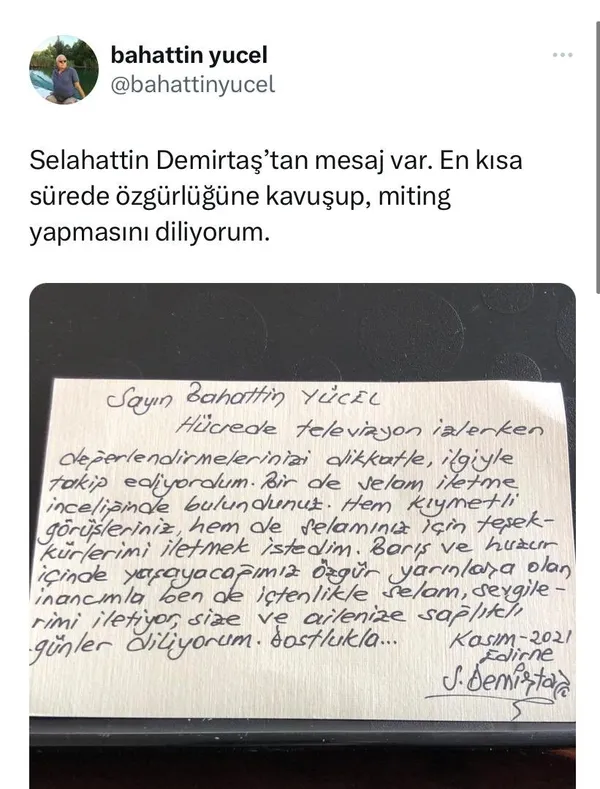 bahattin yucel
@bahattinyucel
Selahattin Demirtaş’tan mesaj var. En kısa
sürede özgürlüğüne kavuşup, miting
yapmasını diliyorum.
Sayın Bahattin YÜCEL
Hücrede televizyon izlerken
değerlendirmelerinizi dikkatle, ilgiyle
takip ediyordum. Bir de selam iletme
inceliğinde bulundunuz. Hem kıymetli
görüşleriniz, hem de selamınız için teşek-
kürlerimi iletmek istedim. Barış ve huzur
içinde yaşayacağımız özgür yarınlara olan
inancımla ben de içtenlikle selam, sevgile-
rimi iletiyor, size ve ailenize sağlıklı
günler diliyorum. Dostlukla...
Kasım-2021
Edirne
S. Demirtaş